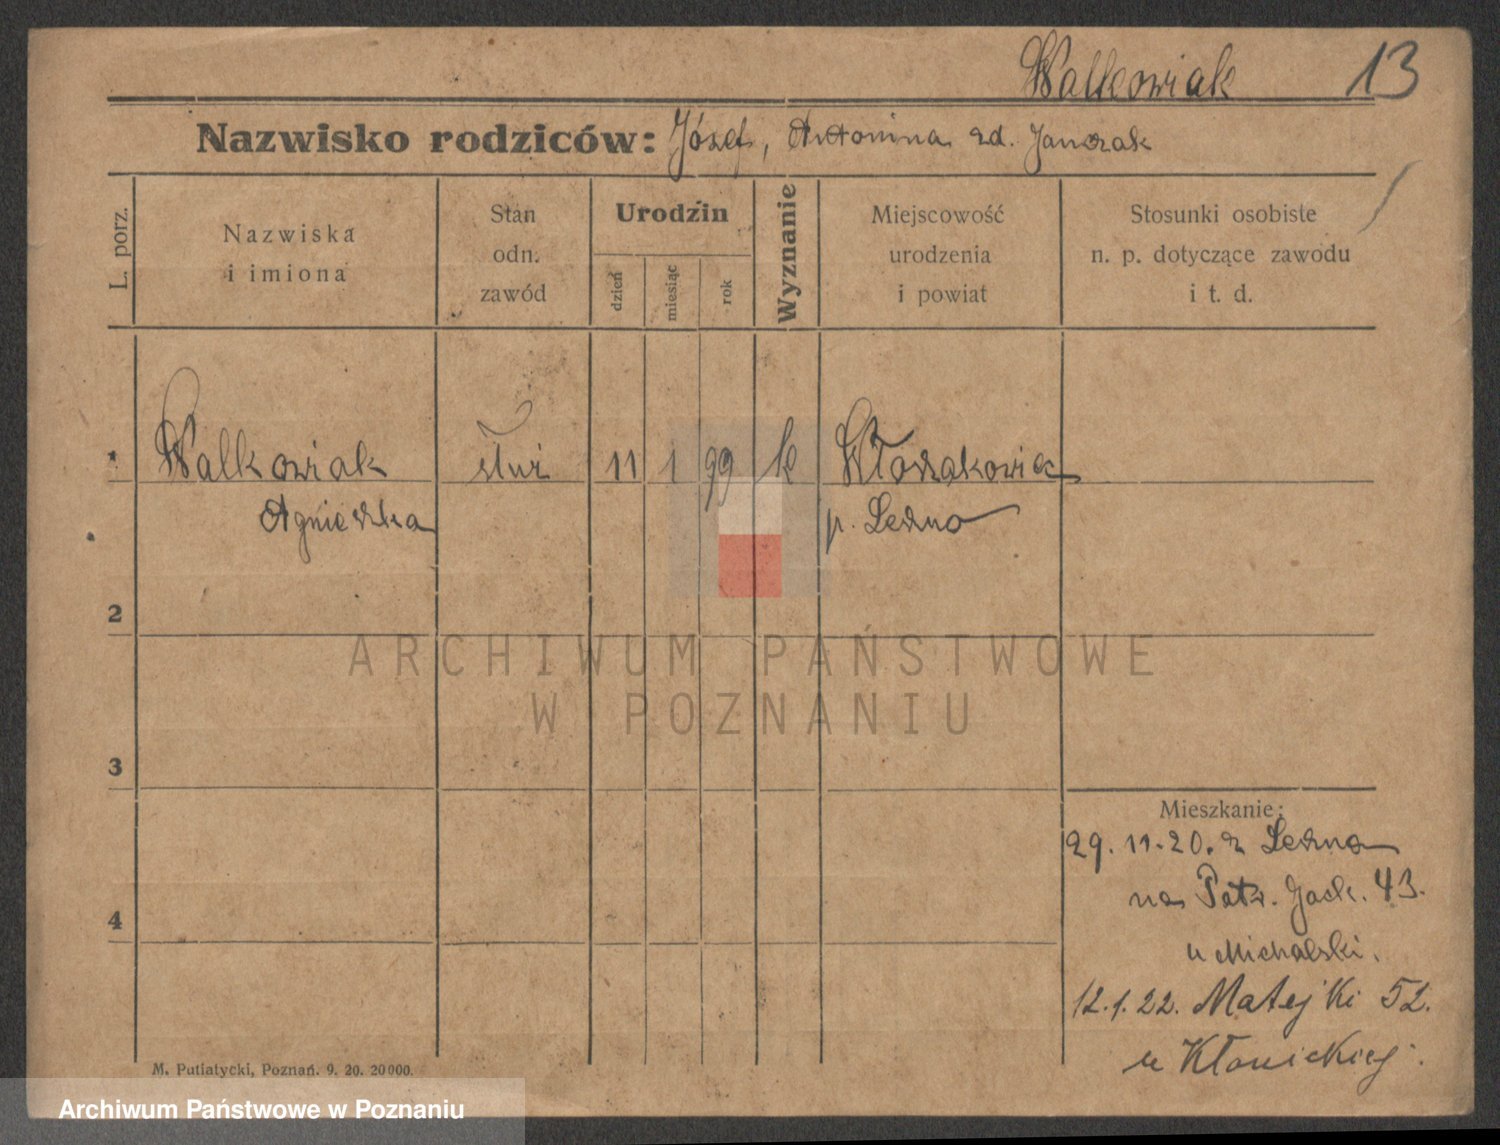 Walkowiak 13
Nazwisko rodziców: Józef, Antonina zd. Janczak
L. porz.
Nazwiska
i imiona
Stan
odn.
zawód
Urodzin
dzień
miesiąc
rok
Wyznanie
Miejscowość
urodzenia
i powiat
Stosunki osobiste
n. p. dotyczące zawodu
i t. d.
Walkowiak służ 11 1 99 k Włoszakowice
Agnieszka p. Leszno
2
ARCHIWUM PAŃSTWOWE
W POZNANIU
3
Mieszkanie:
29. 11. 20. z Leszna
na Patr. Jack. 43.
u Michalski.
4
12. 1. 22. Matejki 52.
u Kłonickiej.
M. Putiatycki, Poznań. 9. 20. 20000.
Archiwum Państwowe w Poznaniu